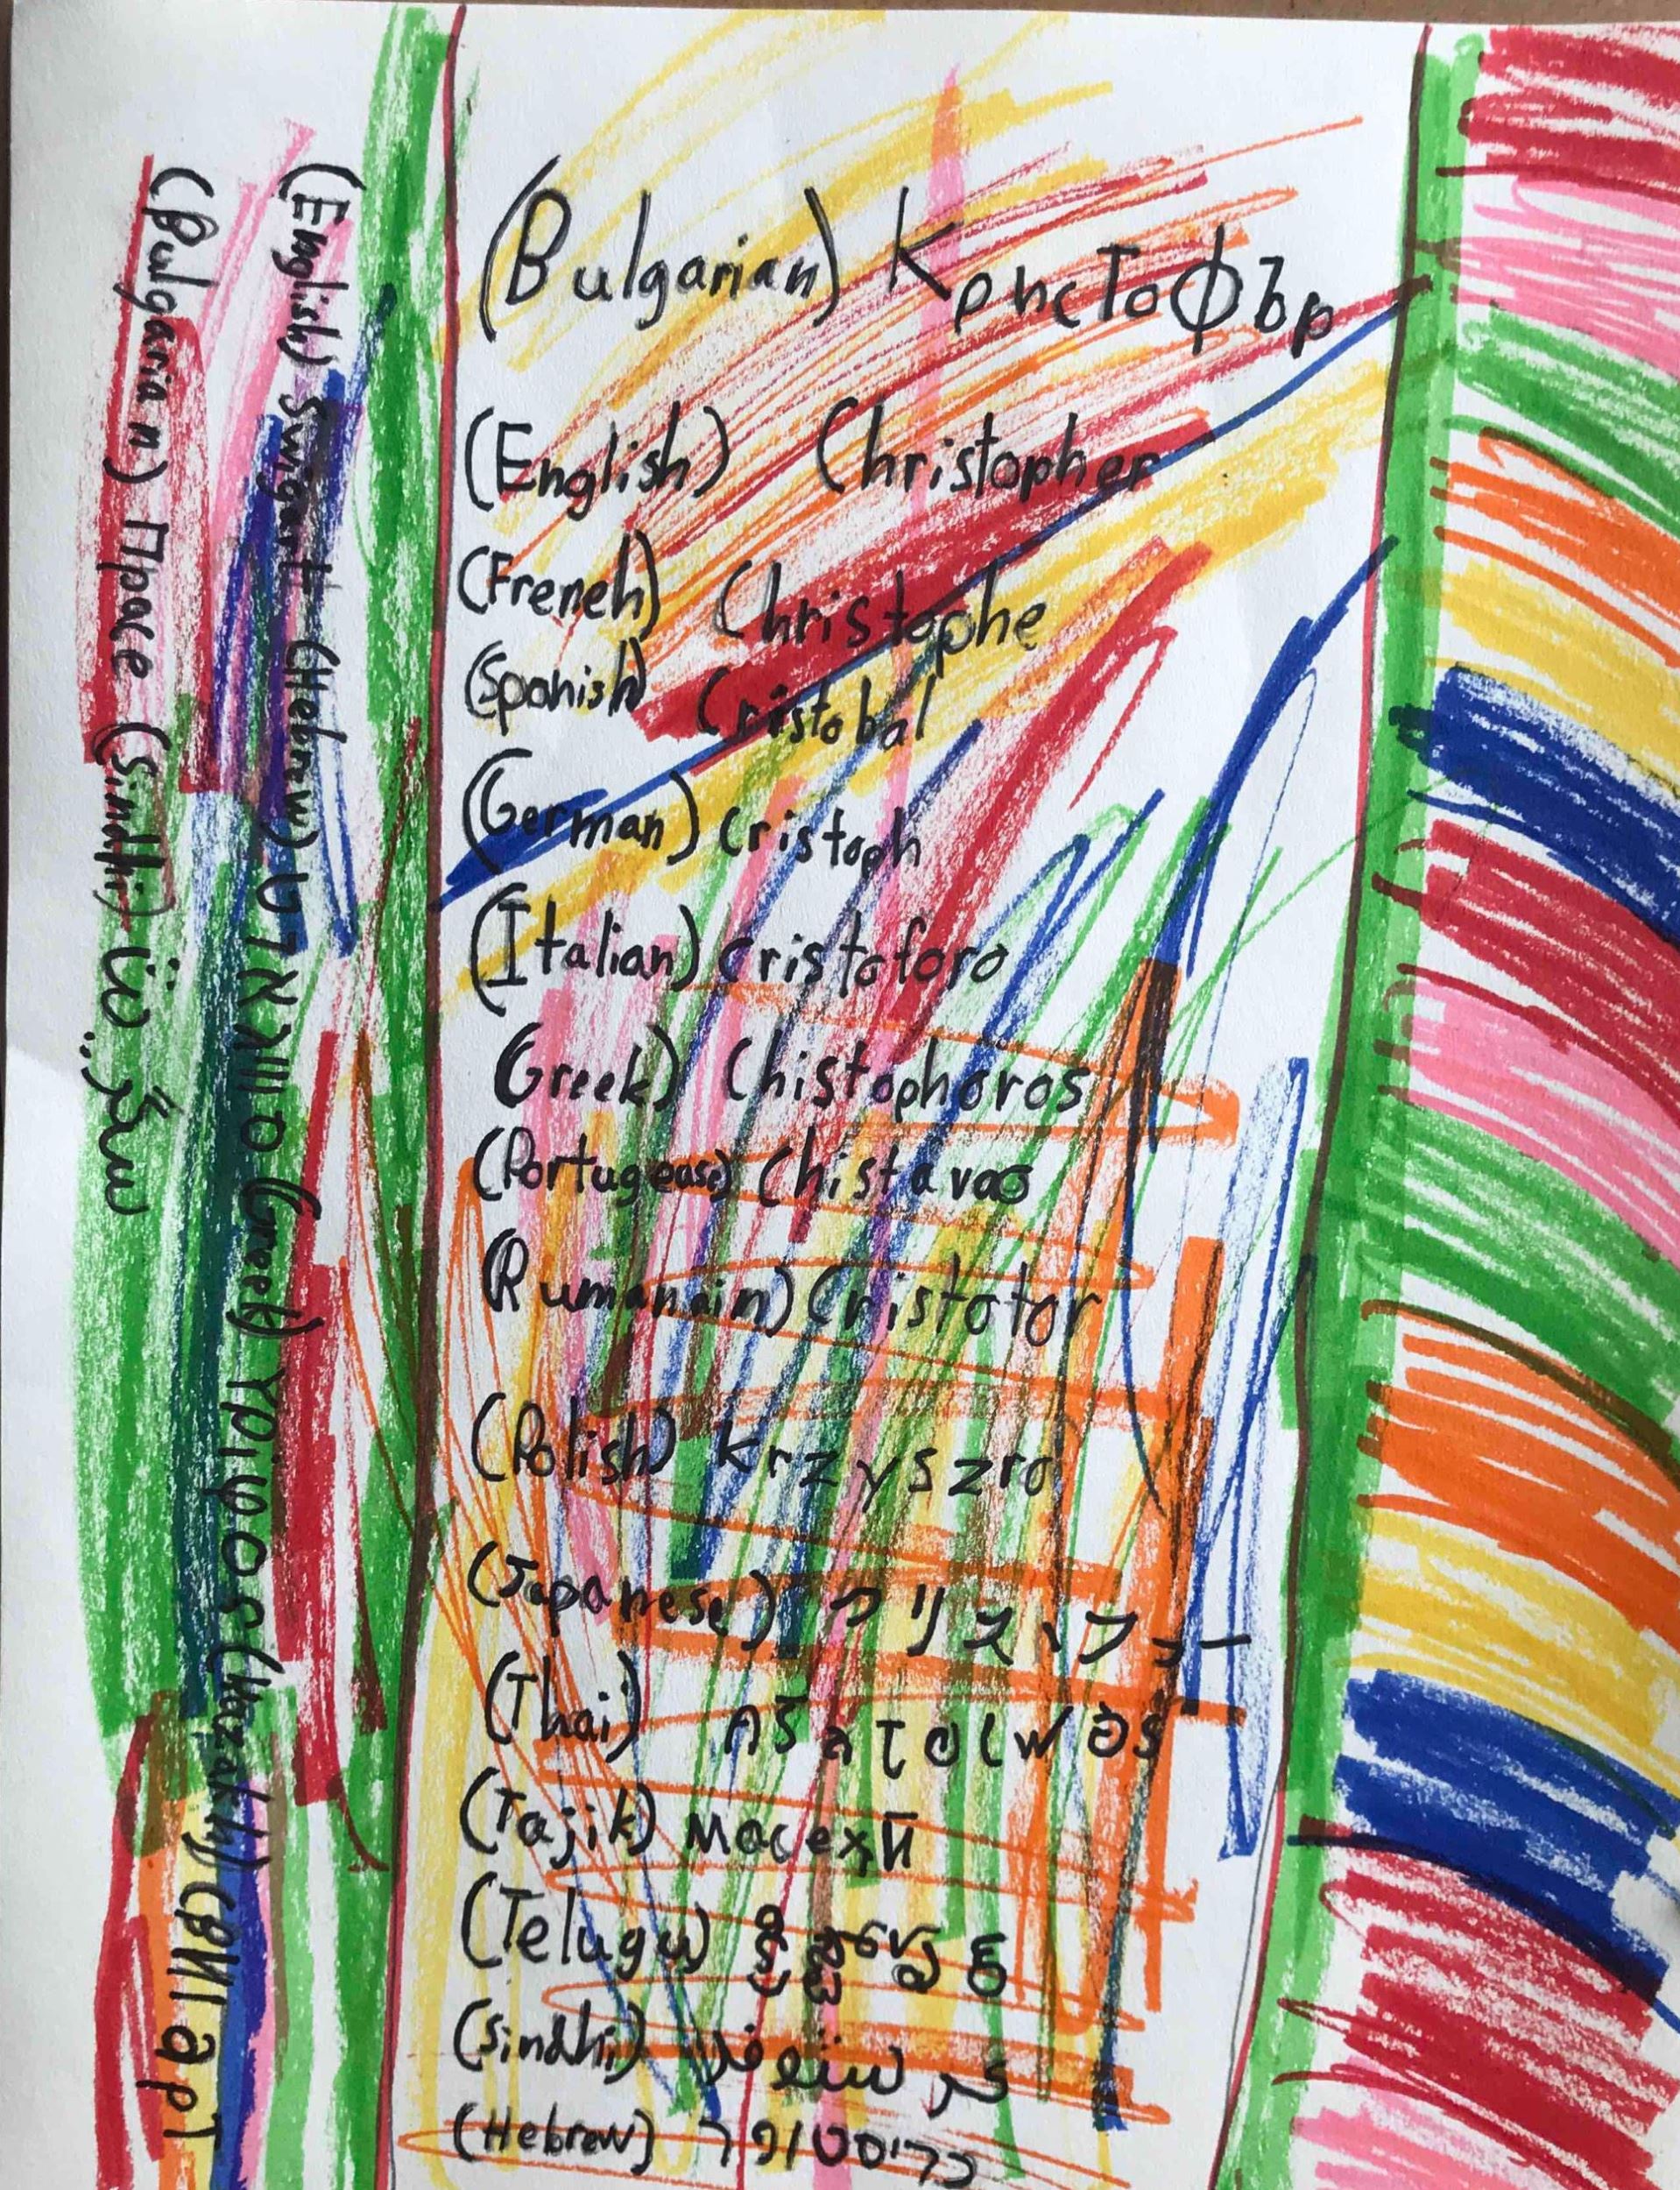 (Bulgarian) КристоФЪр
(English) Christopher
(French) Christophe
(Spanish) Cristobal
(German) Cristoph
(Italian) Cristoforo
(Greek) Chistophoros
(Portugease) Chistavao
(Rumanain) Cristotor
(Polish) Krzyszro
(Japanese) クリストファー
(Thai)
(Tajik) Масехӣ
(Telugu)
(Sindhi)
(Hebrew) כריסטופר
(English) Swigart (Hebrew) (Greek) (Kazakh) (ВИГарТ
(Bulgarian) Прасе (Sindhi)